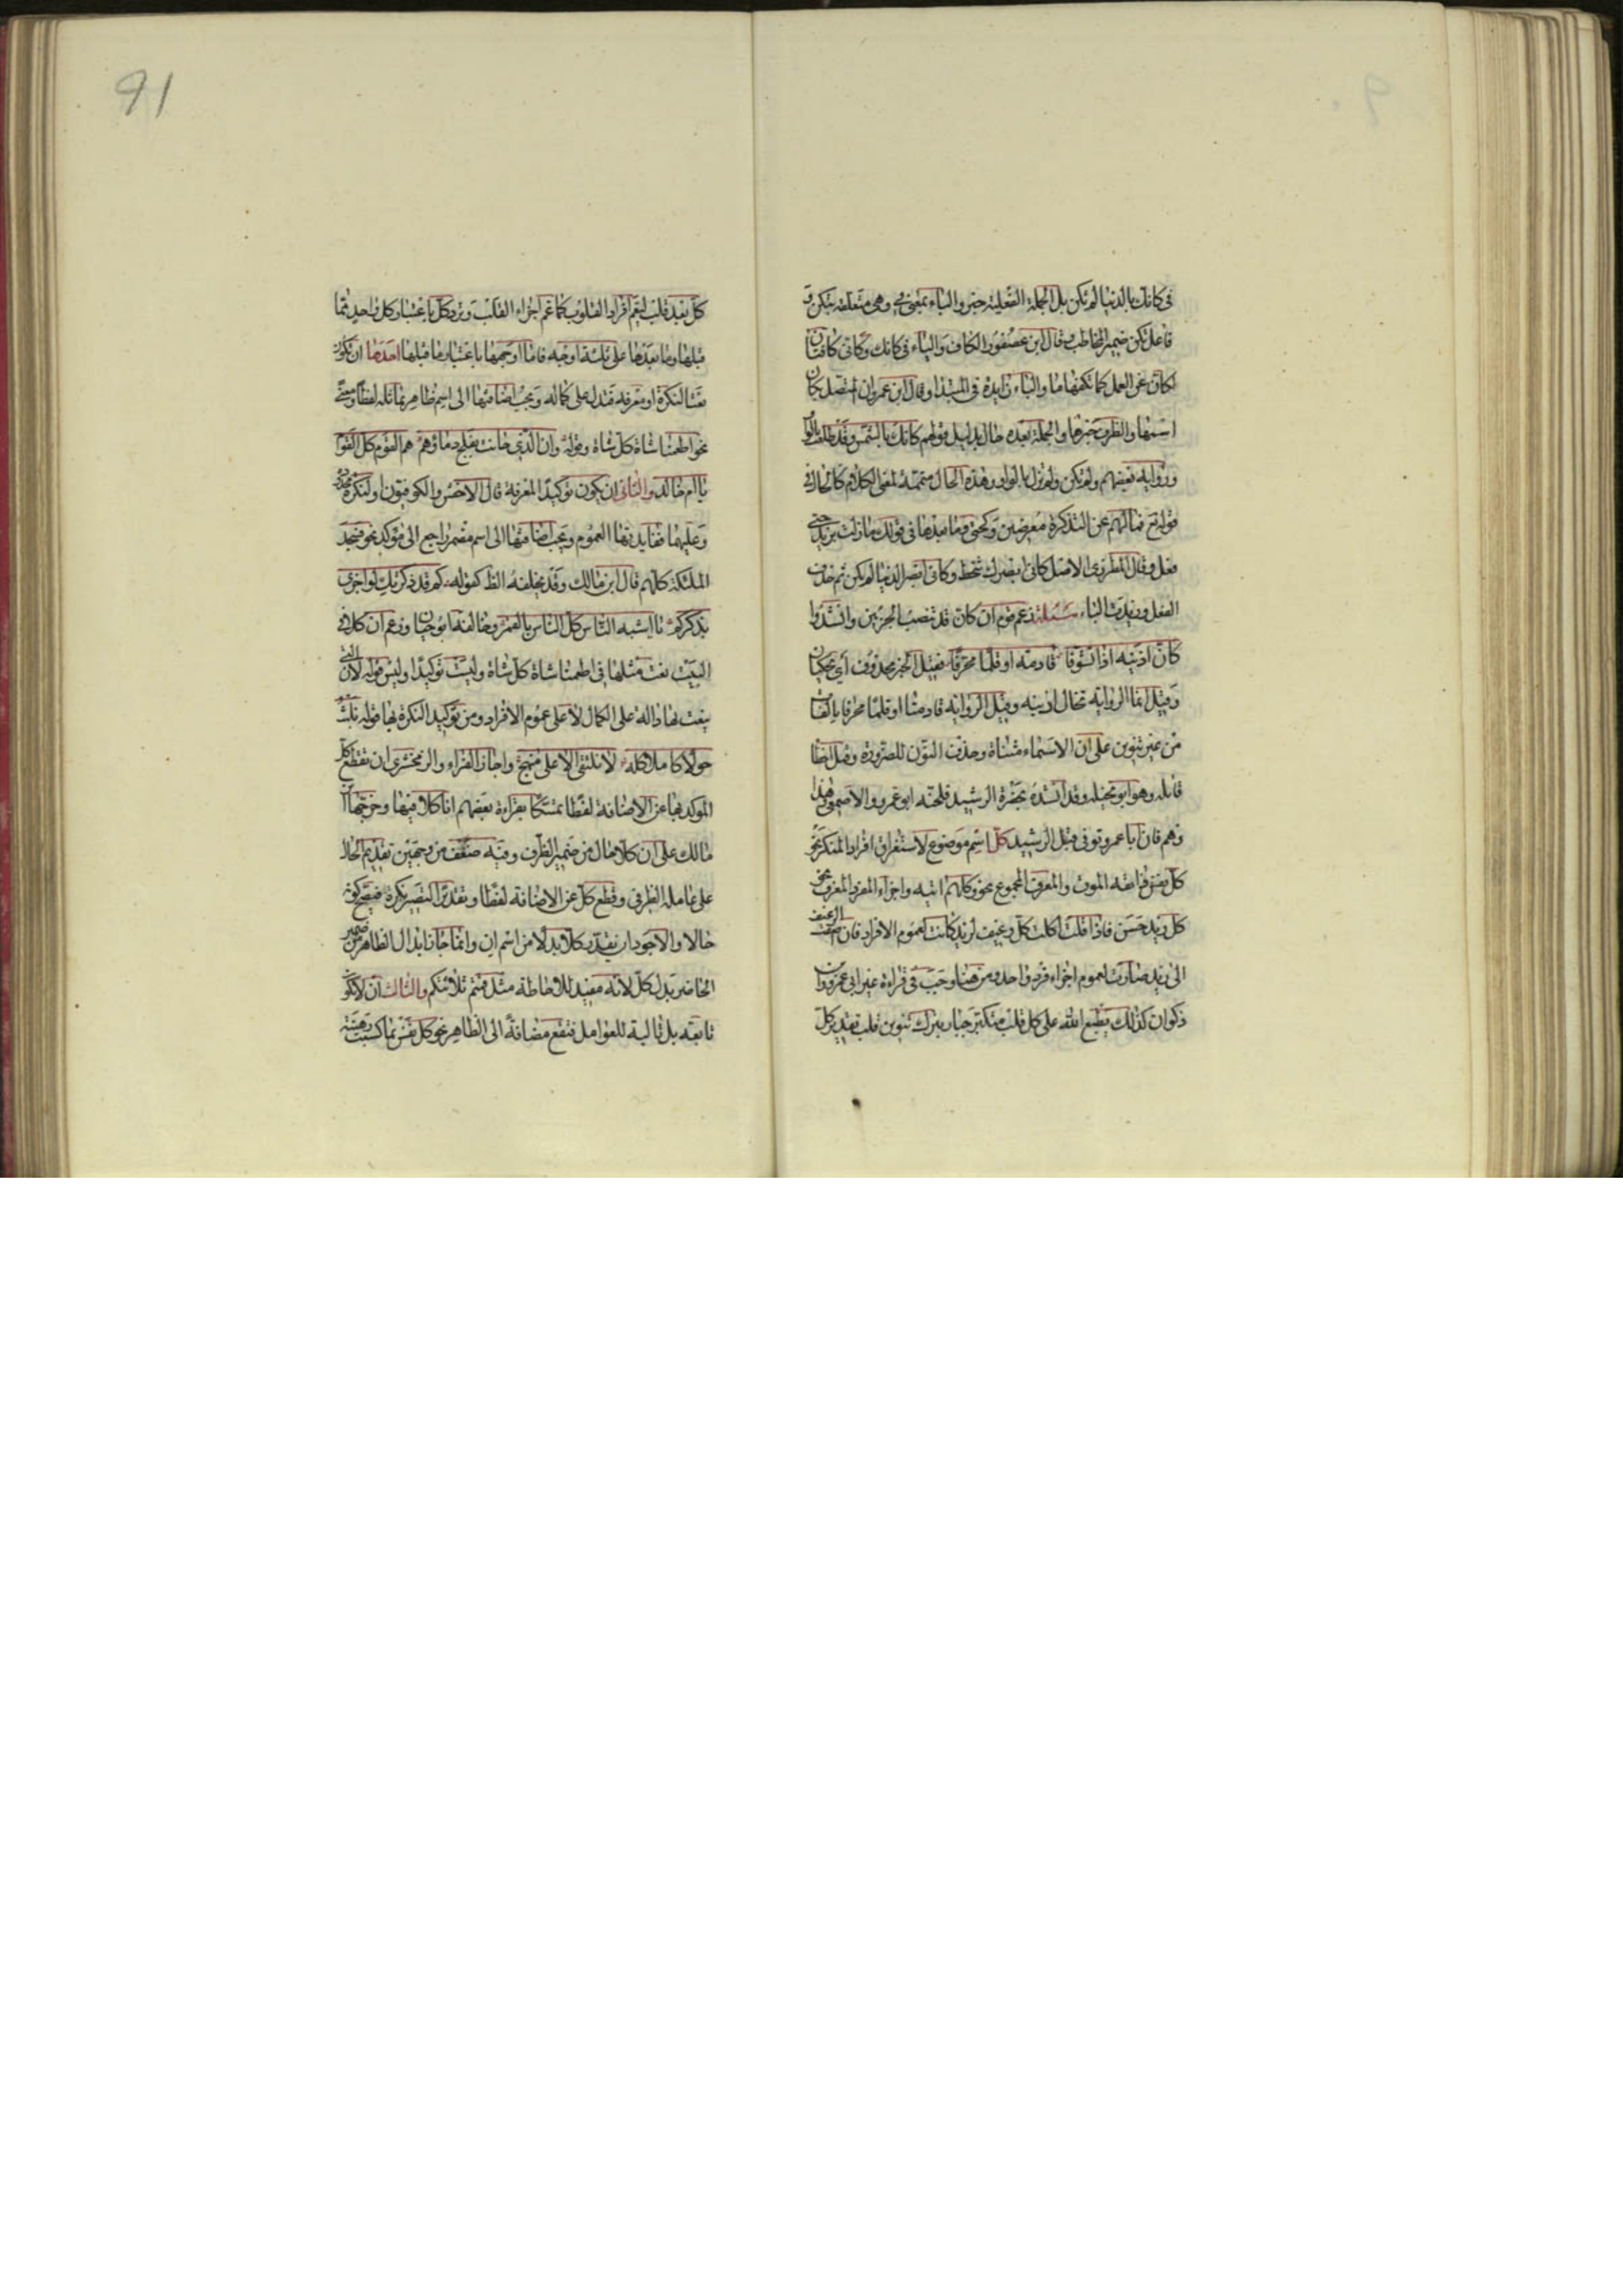 في كانك بالدنيا لم تكن بل الجملة الفعلية خبر والباء بمعنى في وهي متعلقة بتكن و
فاعل تكن ضمير المخاطب وقال ابن عصفور الكاف والياء في كانك وكاني كافتان
لكان عن العمل كما تكفها ما والباء زايدة في المبتدا وقال ابن عمرون المتصل بكان
اسمها والظرف خبرها والجملة بعده حال بدليل قولهم كانك بالشمس وقد طلعت بالواو
ورواية بعضهم ولم تكن ولم تزل بالواو وهذه الحال متممة لمعنى الكلام كالحال في
قوله تع فما لهم عن التذكرة معرضين وكحتى وما بعدها في قولك ما زلت بزيد حتى
فعل وقال المطرزي الاصل كاني ابصرك تنحط وكاني ابصر الدنيا لم تكن ثم حذف
الفعل وزيدت الباء مسئلة زعم قوم ان كان قد تنصب الجزئين وانشدوا
كان اذنيه اذا تشوفا قادمة او قلما محرفا فقيل الخبر محذوف اي يحكيان
وقيل انما الرواية تخال اذنيه وقيل الرواية قادمتا او قلما محرفا بالفات
من غير تنوين على ان الاسماء مثناة وحذفت النون للضرورة وقيل اخطا
قائله وهو ابو نخيله وقد انشده بحضرة الرشيد فلحنه ابو عمرو والاصمعي وهذا
وهم فان ابا عمرو توفي قبل الرشيد كل اسم موضوع لاستغراق افراد المنكر نحو
كل نفس ذائقة الموت والمعرف المجموع نحو وكلهم اتيه واجزاء المفرد المعرف نحو
كل زيد حسن فاذا قلت اكلت كل رغيف لزيد كانت لعموم الافراد فان اضفت الرغيف
الى زيد صارت لعموم اجزاء فرد واحد ومن هنا وجب في قراءة غير ابي عمرو وابن
ذكوان كذلك يطبع الله على كل قلب متكبر جبار بترك تنوين قلب تقدير كل
91
كل بعد قلب ليعم افراد القلوب كما عم اجزاء القلب وترد كل باعتبار كل واحد مما
قبلها وما بعدها على ثلثة اوجه فاما اوجهها باعتبار ما قبلها احدها ان تكون
نعتا لنكرة او معرفة فتدل على كماله ويجب اضافتها الى اسم ظاهر يماثله لفظا ومعنى
نحو اطعمنا شاة كل شاة وقوله وان الذي حانت بفلج دماؤهم هم القوم كل القوم
يا ام خالد والثاني ان يكون توكيدا لمعرفة قال الاخفش والكوفيون او لنكرة محدودة
وعليهما ففايدتها العموم ويجب اضافتها الى اسم مضمر راجع الى مؤكد نحو فسجد
الملئكة كلهم قال ابن مالك وقد يخلفه الظ كقوله كم قد ذكرتك لو اجزى
بذكركم يا اشبه الناس كل الناس بالقمر وخالفه ابو حيان وزعم ان كلا في
البيت نعت مثلها في اطعمنا شاة كل شاة وليست توكيدا وليس قوله لان التي
ينعت بها دالة على الكمال لا على عموم الافراد ومن توكيد النكرة بها قوله نلبث
حولا كاملا كله لا نلتقي الا على منهج واجاز الفراء والزمخشري ان تقطع كل
الموكد بها عن الاضافة لفظا تمسكا بقراءة بعضهم انا كلا فيها وخرجها ابن
مالك على ان كلا حال من ضمير الظرف وفيه ضعف من وجهين تقديم الحال
على عامله الظرفي وقطع كل عن الاضافة لفظا وتقديرا لتصير نكرة فيصح كونه
حالا والاجود ان تقدر كلا بدلا من اسم ان وانما جاز ابدال الظاهر من ضمير
الحاضر بدل كل لانه مفيد للاحاطة مثل قمتم ثلاثتكم والثالث ان لا تكون
تابعة بل تالية للعوامل فتقع مضافة الى الظاهر نحو كل نفس بما كسبت رهينة